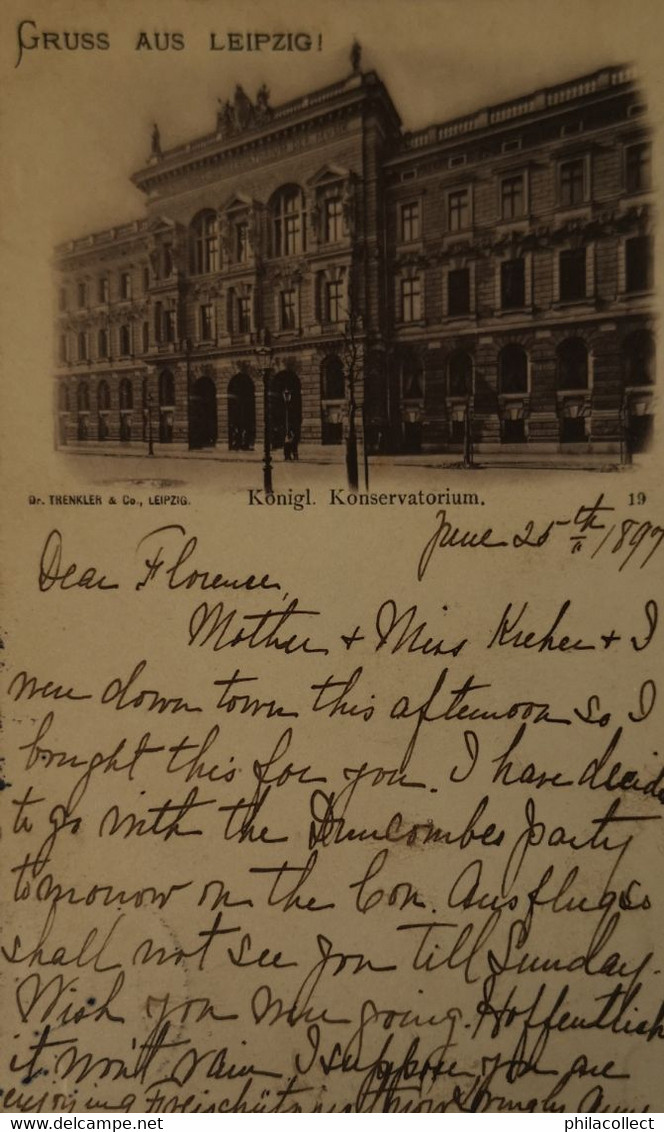 GRUSS AUS LEIPZIG!
Dr. TRENKLER & Co., LEIPZIG.
Königl. Konservatorium.
19
June 25th 1897
Dear Florence,
Mother + Miss + I
were down town this afternoon so I
bought this for you. I have decide
to go with the Duncombes party
tomorrow on the Con. Ausflug so
shall not see you till Sunday.
Wish you were going. Hoffentlich
it won't rain. I suppose you are
enjoying Freischütz just now
philacollect